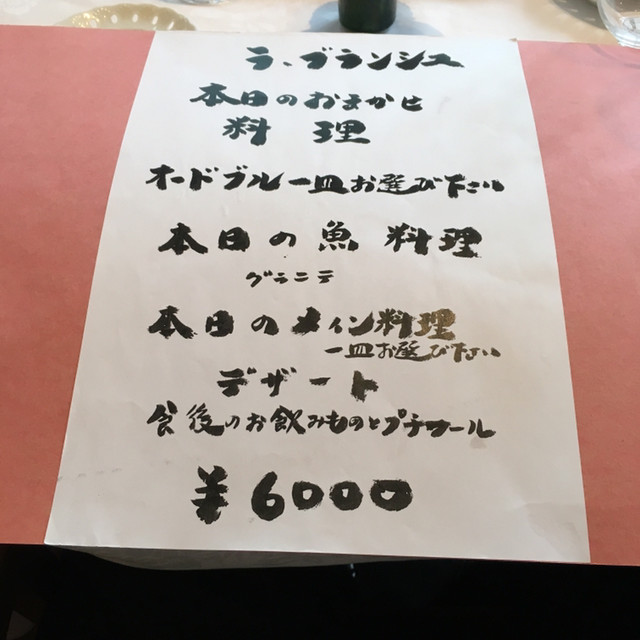 ラ、ブランシエ
本日のおまかせ
料理
オードブル一皿お選び下さい
本日の魚料理
グラニテ
本日のメイン料理
一皿お選び下さい
デザート
食後のお飲みものとプチフール
¥6000